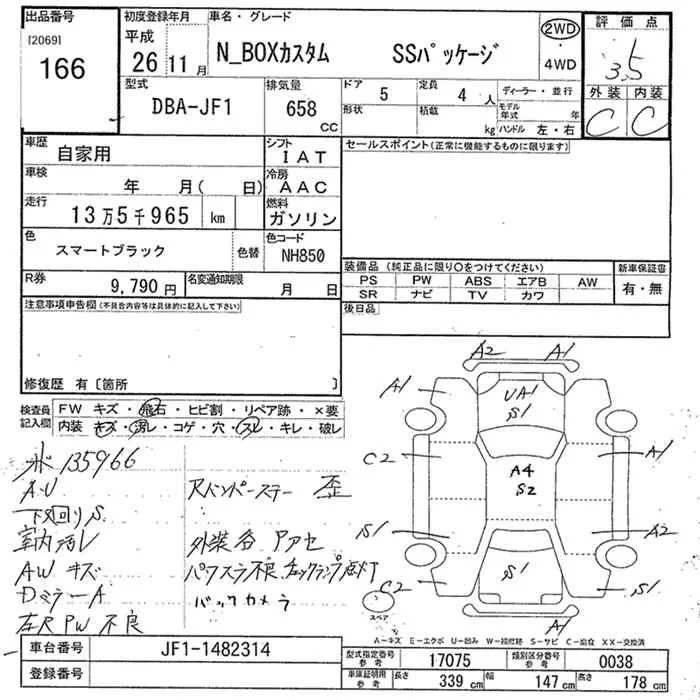 出品番号
[2069]
166
初度登録年月
平成
26 11 月
車名・グレード
N_BOXカスタム SSパッケージ
2WD
・
4WD
評価点
3.5
外装 内装
C C
型式
DBA-JF1
排気量
658 CC
ドア 5
定員 4 人
形状
積載 kg
ディーラー・並行
モデル年式 年
ハンドル 左・右
車歴
自家用
シフト
IAT
車検
年 月( 日)
冷房
AAC
走行
13万5千965 km
燃料
ガソリン
色
スマートブラック
色替
色コード
NH850
R券
9,790 円
名変通知期限
月 日
セールスポイント(正常に機能するものに限ります)
装備品(純正品に限り〇をつけてください)
PS PW ABS エアB AW
SR ナビ TV カワ
新車保証書
有・無
後日品
注意事項申告欄(不具合内容等は具体的に記入して下さい)
修復歴 有〔箇所 〕
検査員
記入欄
FW キズ・飛石・ヒビ割・リペア跡・×要
内装 キズ・汚レ・コゲ・穴・スレ・キレ・破レ
135966
A・U
下廻りS
室内汚レ
AWキズ
DミラーA
左R PW 不良
Rバンパーステー 歪
外装各
パワスラ不良 チェックランプ点灯
バックカメラ
A2 A1
A1
UA1
S1
C2
A4
S2
A1
S1
A2
C2
S1
S1
A1
スペア
A−キズ E−エクボ U−凹み W−補修跡 S−サビ C−腐食 XX−交換済
車台番号
JF1-1482314
登録番号
型式指定番号
参考
17075
類別区分番号
参考
0038
車庫証明用
参考
長さ 339 cm
幅 147 cm
高さ 178 cm